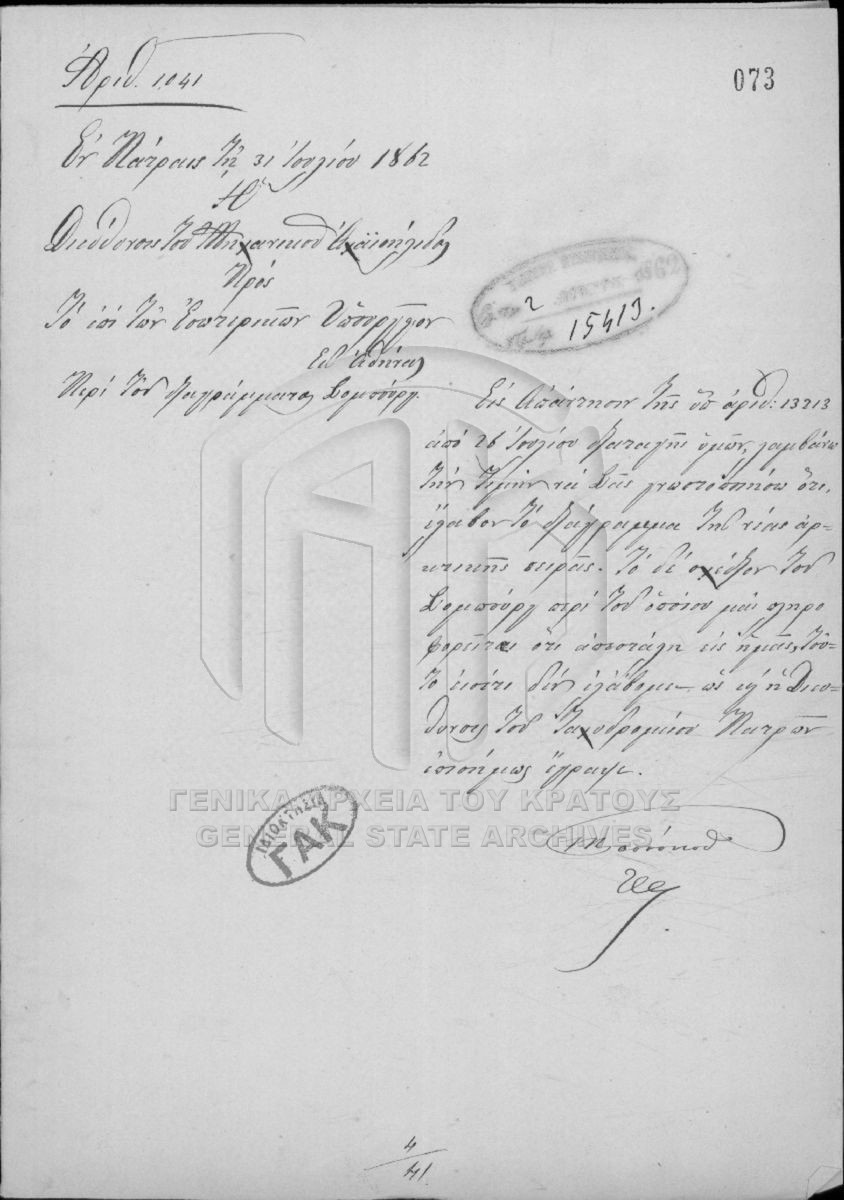 Ἀριθ. 1041
073
Ἐν Πάτραις τῇ 31 Ἰουλίου 1862
Ἡ
Διεύθυνσις τοῦ Μηχανικοῦ Ἀχαϊοήλιδος
Πρὸς
Τὸ ἐπὶ τῶν Ἐσωτερικῶν Ὑπουργεῖον
Εἰς Ἀθήνας
Περὶ τοῦ διαγράμματος Δομπούργ.
2
1862
15413.
Εἰς ἀπάντησιν τῆς ὑπ' ἀριθ: 13213
ἀπὸ 26 Ἰουλίου διαταγῆς ὑμῶν, λαμβάνω
τὴν τιμὴν νὰ Σᾶς γνωστοποιήσω ὅτι,
ἔλαβον τὸ διάγραμμα τῆς νέας ἀρ-
κτικῆς σειρᾶς. Τὸ δὲ σχέδιον τοῦ
Δομπούργ περὶ τοῦ ὁποίου μᾶς πληρο
φορεῖται ὅτι ἀπεστάλη εἰς ἡμᾶς, τοῦ-
το εἰσέτι δὲν ἐλάβομεν ὡς καὶ ἡ Διευ-
θυνσις τοῦ Ταχυδρομείου Πατρῶν
ἐπισήμως ἔγραψε.
ΓΕΝΙΚΑ ΑΡΧΕΙΑ ΤΟΥ ΚΡΑΤΟΥΣ
GENERAL STATE ARCHIVES
ΙΔΙΟΚΤΗΣΙΑ
ΓΑΚ
4
41